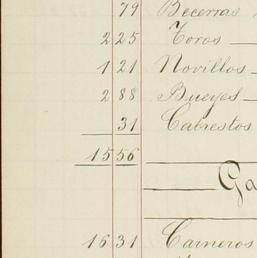 79 Becerras
2 25 Toros
1 21 Novillos
2 88 Bueyes
31 Cabrestos
15 56
Ga
16 31 Carneros